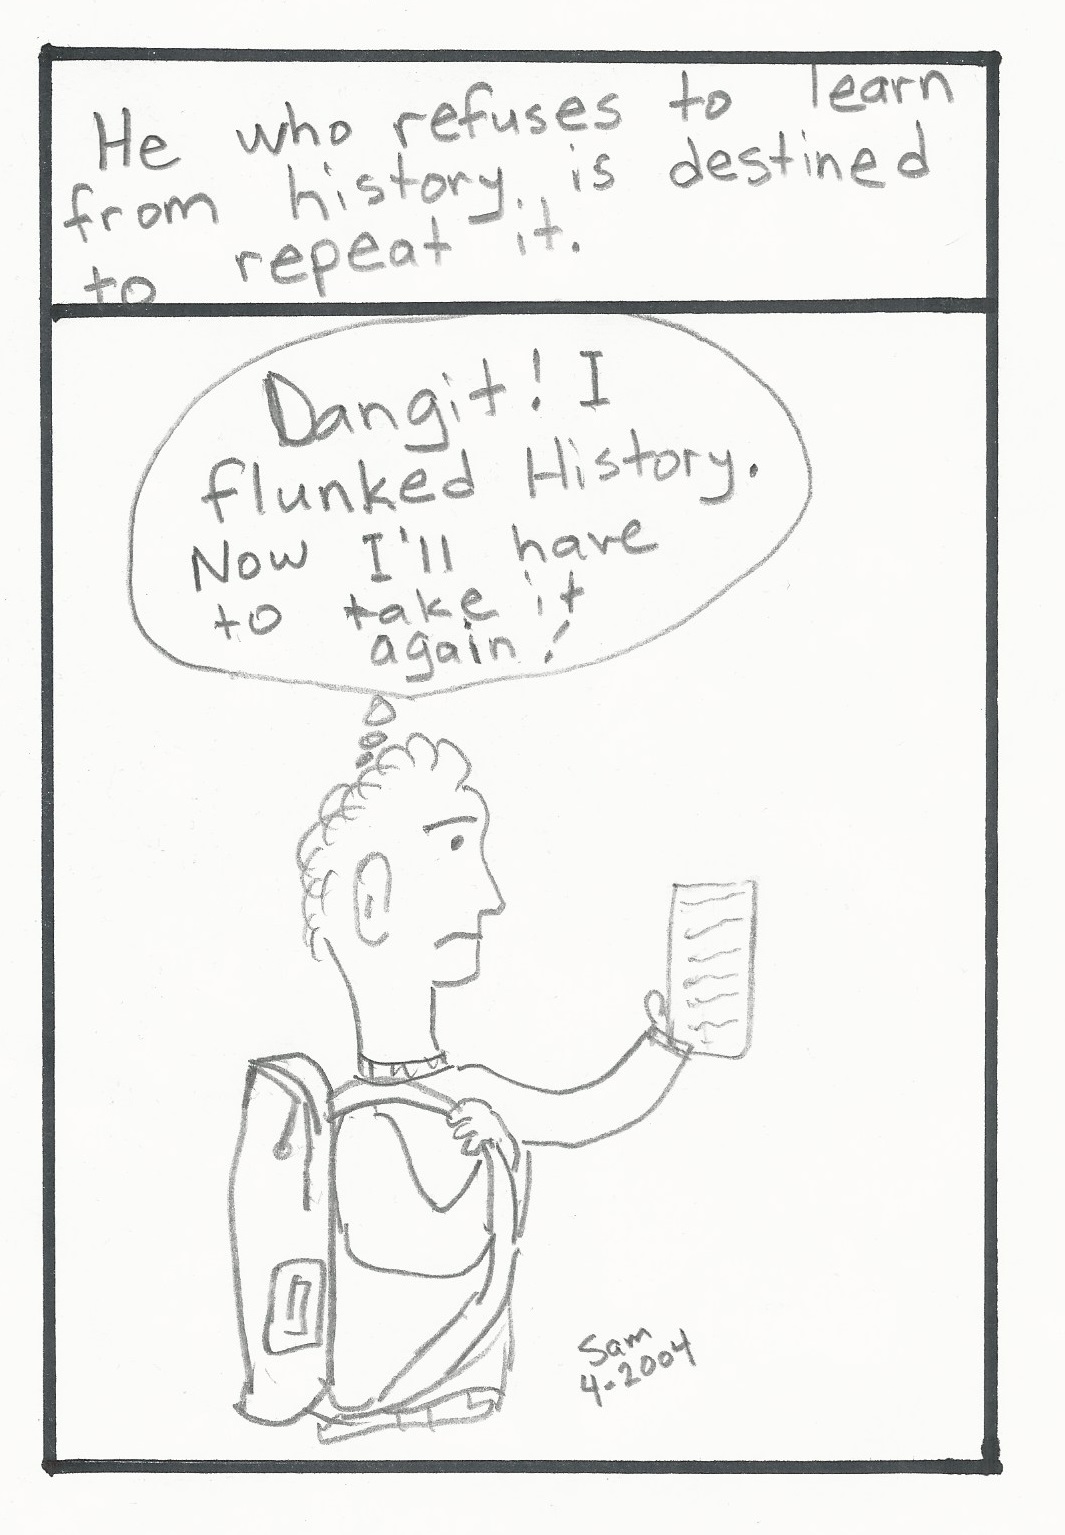 He who refuses to learn
from history, is destined
to repeat it.
Dangit! I
flunked History.
Now I'll have
to take it
again!
Sam
4-2004